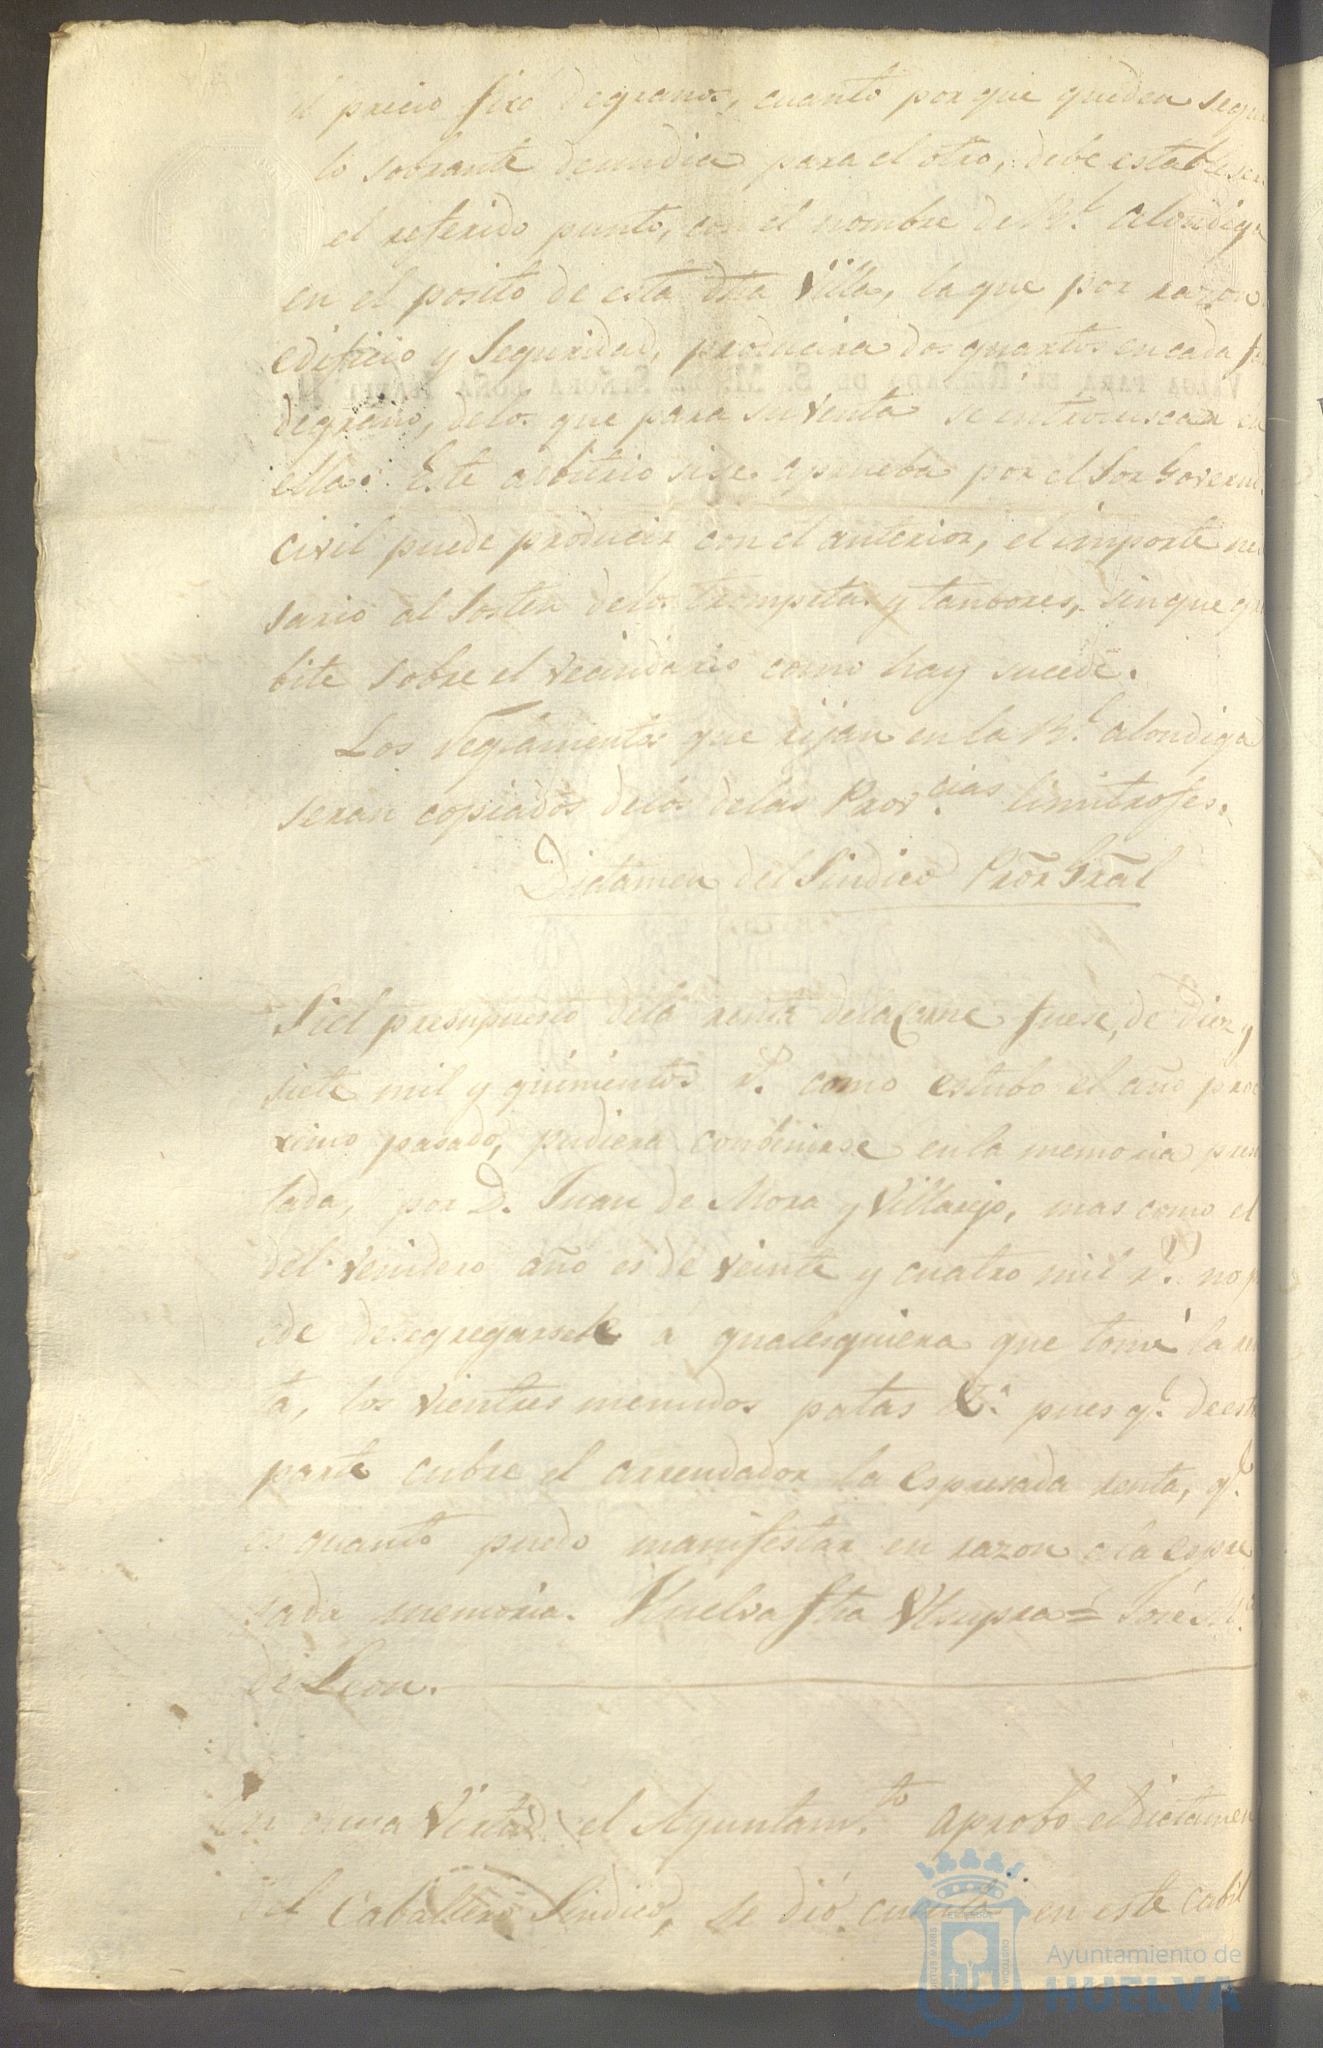 el precio fixo de granos, cuanto por que queden segur
lo sobrante de un dia para el otro, debe estableser
el referido punto, con el nombre de Rl. alondiga
en el posito de esta dha Villa, la que por razon
edificio y Seguridad, producira dos quartos en cada fa
VALGA PARA EL REINADO DE S. M. LA SEÑORA DOÑA
de grano, de los que para su venta se introduscan en
ella. Este arbitrio si se aprueba por el Sor Governad.
civil puede producir con el anterior, el importe nec
sario al Sosten de los trompetas y tanbores, sin que gra
bite sobre el vecindario como hay sucede.
Los reglamentos que rijan en la Rl. alondiga
seran copiados de los de las Provcias. limitrofes.
Dictamen del Sindico Pror̃ Grãl
Si el presupuesto de la renta de la Carne fuese, de Diez y
siete mil y quinientos rs. como estubo el año pro
ximo pasado, pudiera conbenirse en la memoria presen
tada, por D. Juan de Mora y Villarejo, mas como el
del venidero año es de veinte y cuatro mil rs. no pu
ede desegregarsele à qualesquiera que tome la ren
ta, los vientres menudos patas &a. pues qe. de esta
parte cubre el arrendador la espresada renta, qe.
es quanto puedo manifestar en razon a la espre
sada memoria. Huelva fha Ut supra = José Ma.
de Leon.
En cuya virtud el Ayuntamto. aprobó el dictamen
del Caballero Sindico, se dió cuenta en este cabil
Ayuntamiento de
HUELVA